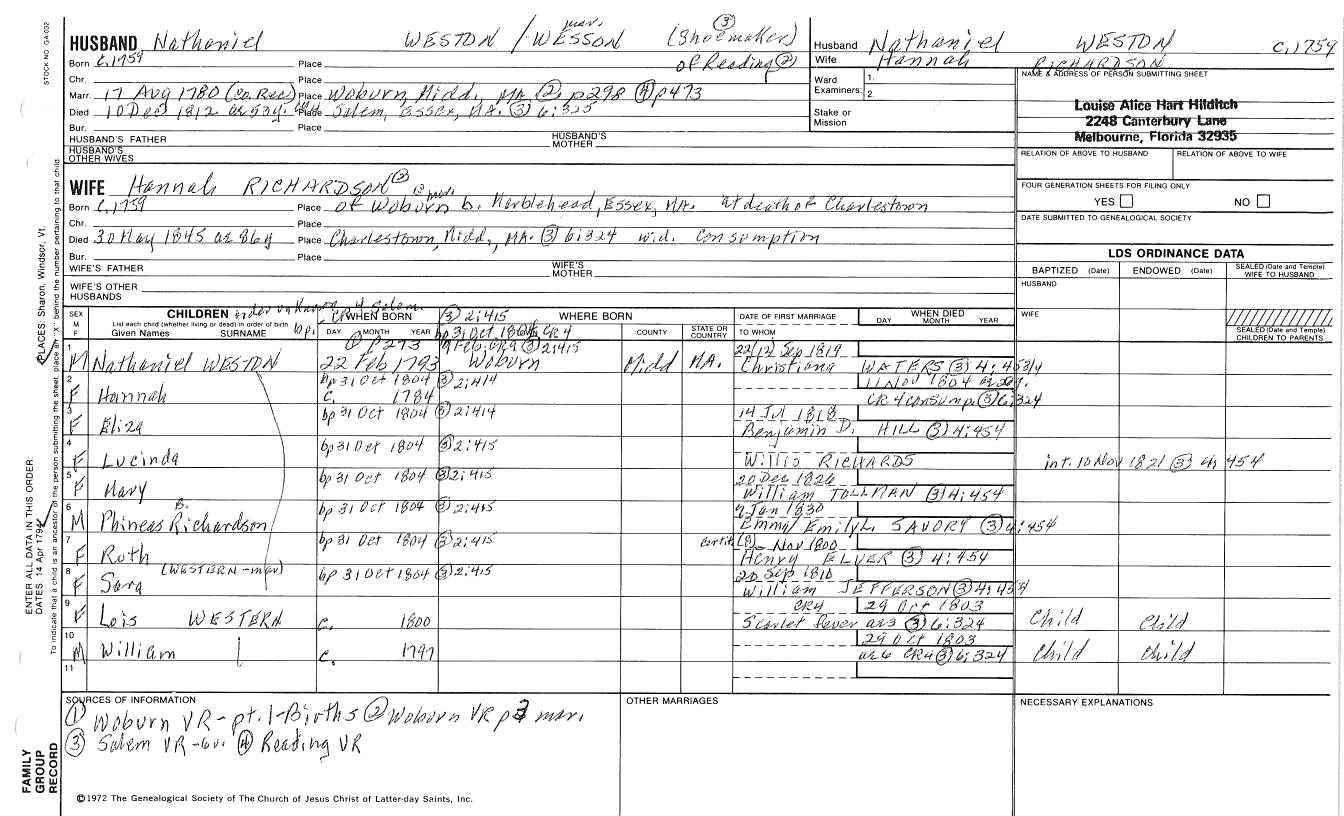 STOCK NO. GA-032
HUSBAND Nathaniel WESTON / WESSON mar. (Shoemaker) ③
Born c.1759 Place of Reading ②
Chr. Place
Marr. 17 Aug 1780 (Co. Rec) Place Woburn, Midd, MA ② p298 ④ p473
Died 10 Dec 1812 ae 53y. Place Salem, Essex, MA. ③ 6:325
Bur. Place
HUSBAND'S FATHER HUSBAND'S MOTHER
HUSBAND'S OTHER WIVES
WIFE Hannah RICHARDSON ②
Born c.1759 Place of Woburn b. Marblehead, Essex, MA. at death of Charlestown
Chr. Place
Died 30 May 1845 ae 86y Place Charlestown, Midd, MA. ③ 6:324 wid. Consumption
Bur. Place
WIFE'S FATHER WIFE'S MOTHER
WIFE'S OTHER HUSBANDS
Husband Nathaniel WESTON c.1759
Wife Hannah RICHARDSON
Ward Examiners: 1. 2.
Stake or Mission
NAME & ADDRESS OF PERSON SUBMITTING SHEET
Louise Alice Hart Hilditch
2248 Canterbury Lane
Melbourne, Florida 32935
RELATION OF ABOVE TO HUSBAND RELATION OF ABOVE TO WIFE
FOUR GENERATION SHEETS FOR FILING ONLY
YES NO
DATE SUBMITTED TO GENEALOGICAL SOCIETY
LDS ORDINANCE DATA
BAPTIZED (Date) ENDOWED (Date) SEALED (Date and Temple) WIFE TO HUSBAND
HUSBAND
WIFE
SEALED (Date and Temple) CHILDREN TO PARENTS
SEX M F CHILDREN order unknown CR 4 Salem
List each child (whether living or dead) in order of birth
Given Names SURNAME
WHEN BORN DAY MONTH YEAR ③ 2:415
WHERE BORN bp 31 Oct 1804 CR 4
COUNTY STATE OR COUNTRY
DATE OF FIRST MARRIAGE TO WHOM
WHEN DIED DAY MONTH YEAR
① p273 ③ 2:415
1 M Nathaniel WESTON 22 Feb 1793 Woburn Midd MA. 22/12 Sep 1819 Christiana WATERS ③ 4:453/4
2 F Hannah bp 31 Oct 1804 ③ 2:414 c. 1784 11 Nov 1804 CR 4 consump. ③ 6:324
3 F Eliza bp 31 Oct 1804 ③ 2:414 14 Jul 1818 Benjamin D. HILL ③ 4:454
4 F Lucinda bp 31 Oct 1804 ③ 2:415 Willis RICHARDS int. 10 Nov 1821 ③ 454
5 F Mary bp 31 Oct 1804 ③ 2:415 20 Dec 1826 William TOLLMAN ③ 4:454
6 M Phineas B. Richardson bp 31 Oct 1804 ③ 2:415 9 Jan 1830 Emma/Emily L. SAVORY ③ 4:454
7 F Ruth bp 31 Oct 1804 ③ 2:415 certif (8) Nov 1800 Henry ELVER ③ 4:454
8 F Sara (WESTERN-mar) bp 31 Oct 1804 ③ 2:415 20 Sep 1810 William JEFFERSON ③ 4:454
9 F Lois WESTERN c. 1800 CR4 29 Oct 1803 Scarlet fever ae 3 ③ 6:324 Child Child
10 M William c. 1797 29 Oct 1803 ae 6 CR4 ③ 6:324 Child Child
11
SOURCES OF INFORMATION
① Woburn VR - pt. 1 - Births ② Woburn VR p3 mar.
③ Salem VR - 6v. ④ Reading VR
OTHER MARRIAGES
NECESSARY EXPLANATIONS
©1972 The Genealogical Society of The Church of Jesus Christ of Latter-day Saints, Inc.
FAMILY GROUP RECORD
ENTER ALL DATA IN THIS ORDER:
DATES: 14 Apr 1794
PLACES: Sharon, Windsor, Vt.
To indicate that a child is an ancestor of the person submitting the sheet, place an "X" behind the number pertaining to that child